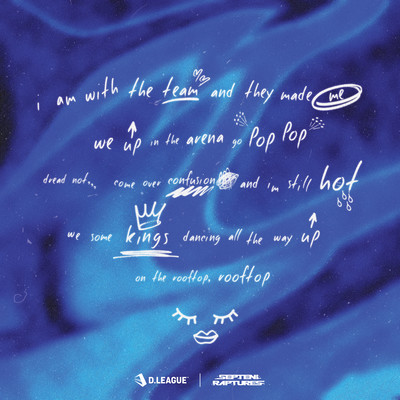 i am with the team and they made me
we up in the arena go pop pop
dread not... come over confusion and i'm still hot
we some kings dancing all the way up
on the rooftop, rooftop
D.LEAGUE | SEPTENI RAPTURES